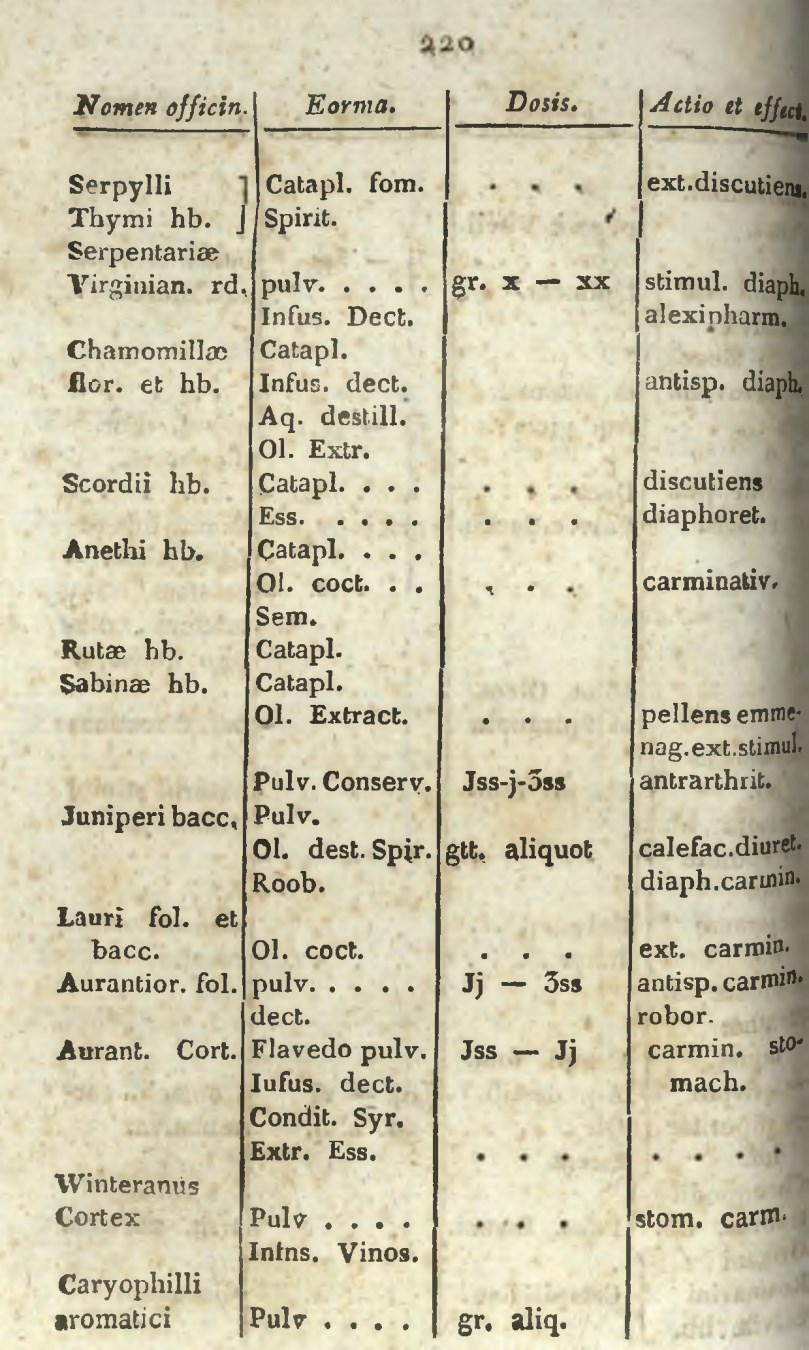 220
Nomen officin. Eorma. Dosis. Actio et effect.
Serpylli ] Catapl. fom. . . . ext.discutiens.
Thymi hb. ] Spirit.
Serpentariæ
Virginian. rd. pulv. . . . . gr. x — xx stimul. diaph.
Infus. Dect. alexipharm.
Chamomillæ Catapl.
flor. et hb. Infus. dect. antisp. diaph.
Aq. destill.
Ol. Extr.
Scordii hb. Catapl. . . . . . . discutiens
Ess. . . . . . . . diaphoret.
Anethi hb. Catapl. . . .
Ol. coct. . . . . . carminativ.
Sem.
Rutæ hb. Catapl.
Sabinæ hb. Catapl.
Ol. Extract. . . . pellens emme-
nag.ext.stimul.
Pulv. Conserv. Jss-j-Ʒss antrarthrit.
Juniperi bacc, Pulv.
Ol. dest. Spir. gtt. aliquot calefac.diuret.
Roob. diaph.carmin.
Lauri fol. et
bacc. Ol. coct. . . . ext. carmin.
Aurantior. fol. pulv. . . . . Jj — Ʒss antisp. carmin.
dect. robor.
Aurant. Cort. Flavedo pulv. Jss — Jj carmin. sto-
Iufus. dect. mach.
Condit. Syr.
Extr. Ess. . . . . . . .
Winteranus
Cortex Pulv . . . . . . . stom. carm.
Intns. Vinos.
Caryophilli
aromatici Pulv . . . . gr. aliq.